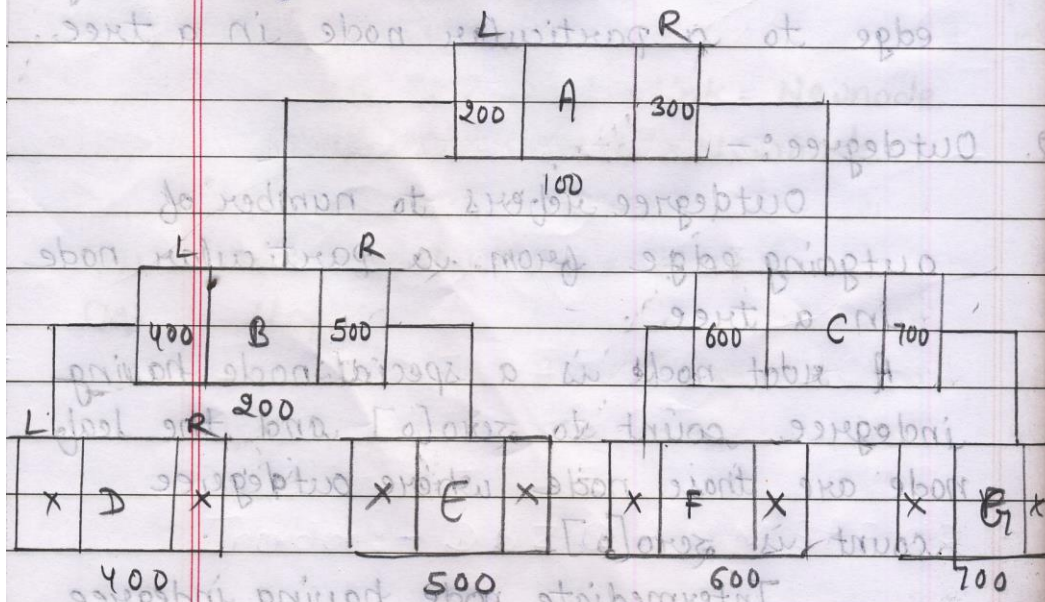 L R
200 A 300
100
L R
400 B 500 600 C 700
200
L R
X D X X E X X F X X G X
400 500 600 700